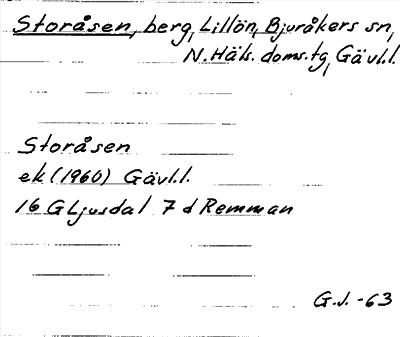 Storåsen, berg, Lillön, Bjuråkers sn,
N. Häls. doms.tg, Gävl.l.
Storåsen
ek (1960) Gävl.l.
16 G Ljusdal 7 d Remman
G.J. -63